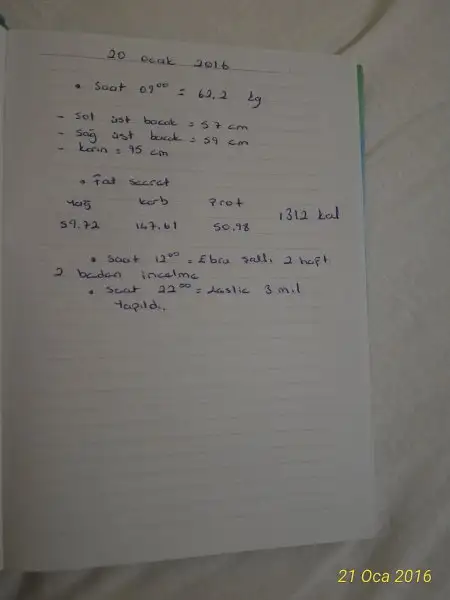 20 Ocak 2016
• Saat 09⁰⁰ = 62.2 kg
- Sol üst bacak = 57 cm
- Sağ üst bacak = 59 cm
- karın = 95 cm
• Fat secret
Yağ karb Prot
59.72 147.61 50.98 1312 kal
• Saat 12⁰⁰ = Ebru Sallı 2 haft
2 beden incelme
• Saat 22⁰⁰ = Leslie 3 mil
Yapıldı.
21 Oca 2016